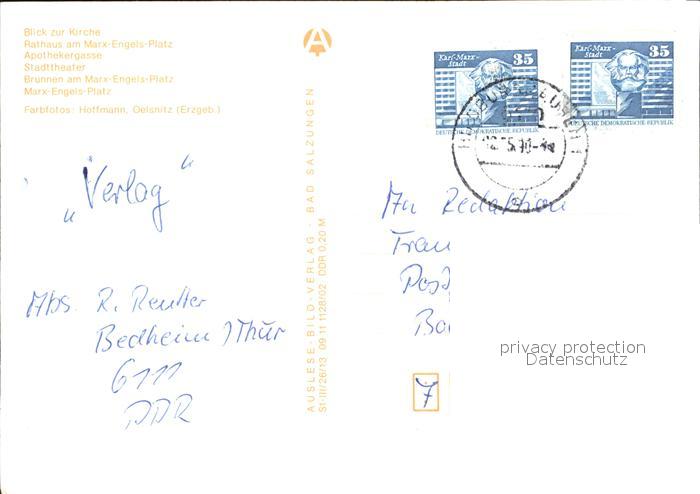 Blick zur Kirche
Rathaus am Marx-Engels-Platz
Apothekergasse
Stadttheater
Brunnen am Marx-Engels-Platz
Marx-Engels-Platz
Farbfotos: Hoffmann, Oelsnitz (Erzgeb.)
„Verlag“
Abs. R. Reutter
Bedheim / Thür
6111
DDR
AUSLESE-BILD-VERLAG · BAD SALZUNGEN
St-III/26/13 09 11 1128/02 DDR 0,20 M
Karl-Marx-
Stadt
35
DEUTSCHE DEMOKRATISCHE REPUBLIK
Karl-Marx-
Stadt
35
DEUTSCHE DEMOKRATISCHE REPUBLIK
An Redaktion
7
privacy protection
Datenschutz